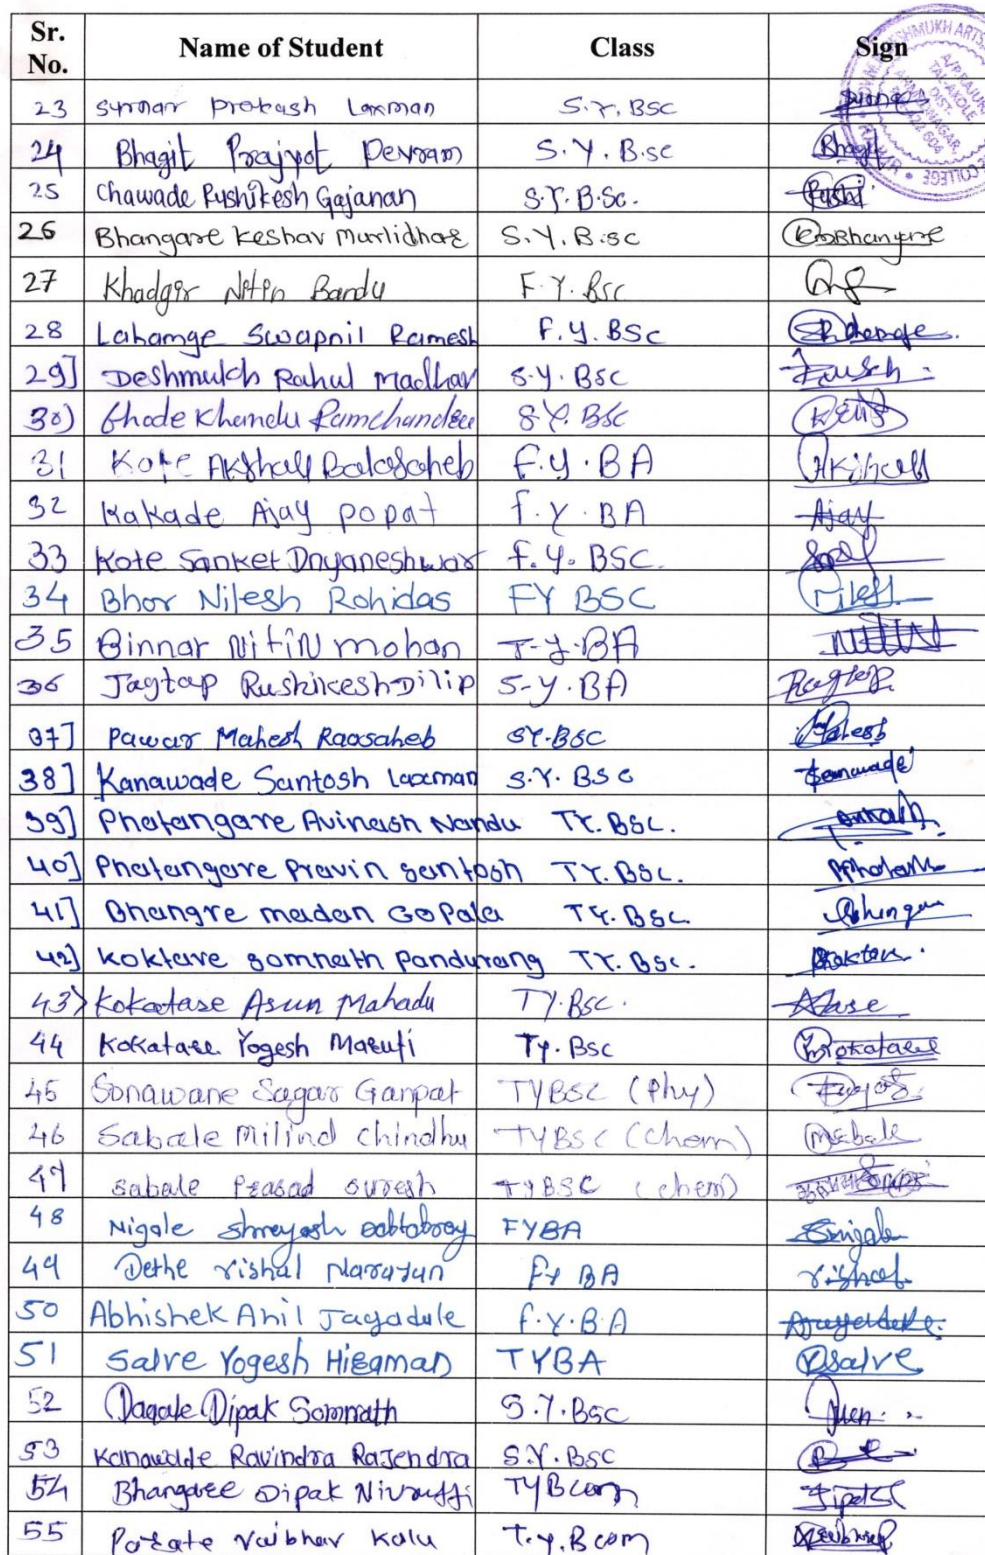 Sr. No. Name of Student Class Sign
23 Prakash Laxman S.Y. BSC
24 Bhagit Prajyot Devram S.Y. B.sc Bhagit
25 Chawade Rushikesh Gajanan S.Y. B.Sc. Rushi
26 Bhangare Keshav Murlidhar S.Y. B.sc KMBhangare
27 Khadgir Nitin Bandu F.Y. Bsc
28 Lahamge Swapnil Ramesh F.Y. BSc
29] Deshmukh Rahul Madhav S.Y. BSC
30) Ghode Khandu Ramchandra S.Y. BSC
31 Kote Akshay Balasaheb F.Y. BA
32 Kakade Ajay popat F.Y. BA Ajay
33 Kote Sanket Dnyaneshwar F.Y. BSC.
34 Bhor Nilesh Rohidas FY BSC Nilesh
35 Binnar NitiN mohan T-Y-BA
36 Jagtap Rushikesh Dilip S-Y.BA
37] Pawar Mahesh Raosaheb SY.BSC
38] Kanawade Santosh Laxman S.Y. BSC Kanawade
39] Phatangare Avinash Nandu TY. BSC.
40] Phatangare Pravin Santosh TY. BSC.
41] Bhangre madan Gopala TY. BSC
42] Koktare Somnath Pandurang TY. BSC.
43) Kokatase Arun Mahadu TY. BSC.
44 Kokatase Yogesh Maruti TY. BSC
45 Sonawane Sagar Ganpat TYBSC (Phy)
46 Sabale Milind Chindhu TYBSC (Chem) Msabale
47 Sabale Prasad Suresh TYBSC (chem)
48 Nigale Shreyash FYBA Snigale
49 Dethe Vishal Narayan FY BA Vishal
50 Abhishek Anil Jagadale F.Y.B.A
51 Salve Yogesh Hiraman TYBA Ysalve
52 Dagale Dipak Somnath S.Y. BSC
53 Kanawade Ravindra Rajendra S.Y. BSC
54 Bhangare Dipak Nivrutti TYBcom
55 Parate Vaibhav Kalu T.Y. Bcom Vaibhav